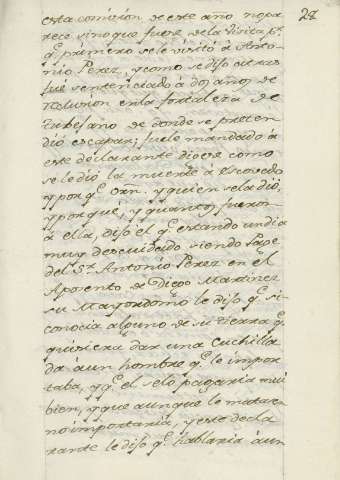 28
esta comision de este año no pa
rece, sino que fuese de la visita, pr
q.e primero se le visitó á Anto-
nio Perez, y como se dijo atras
fue sentenciado á dos años de
reclusion en la fortaleza de
Turuegano de donde se preten
dió escapar; fuele mandado á
este declarante dijese como
se le dió la muerte á Escovedo
y por q.e orn. y quien se la dió,
y porqué, y quantos fueron
á ella, dijo q.e estando un dia
muy descuidado siendo Page
del S.r Antonio Perez en el
Aposento de Diego Martinez
su Mayordomo le dijo q.e si
conocia alguno de su tierra q.e
quisiera dar una cuchilla
da á un hombre q.e le impor
taba, y q.e él se lo pagaria mui
bien, y que aunque le matase
no importaria, y este decla
rante le dijo q.e hablaria á un